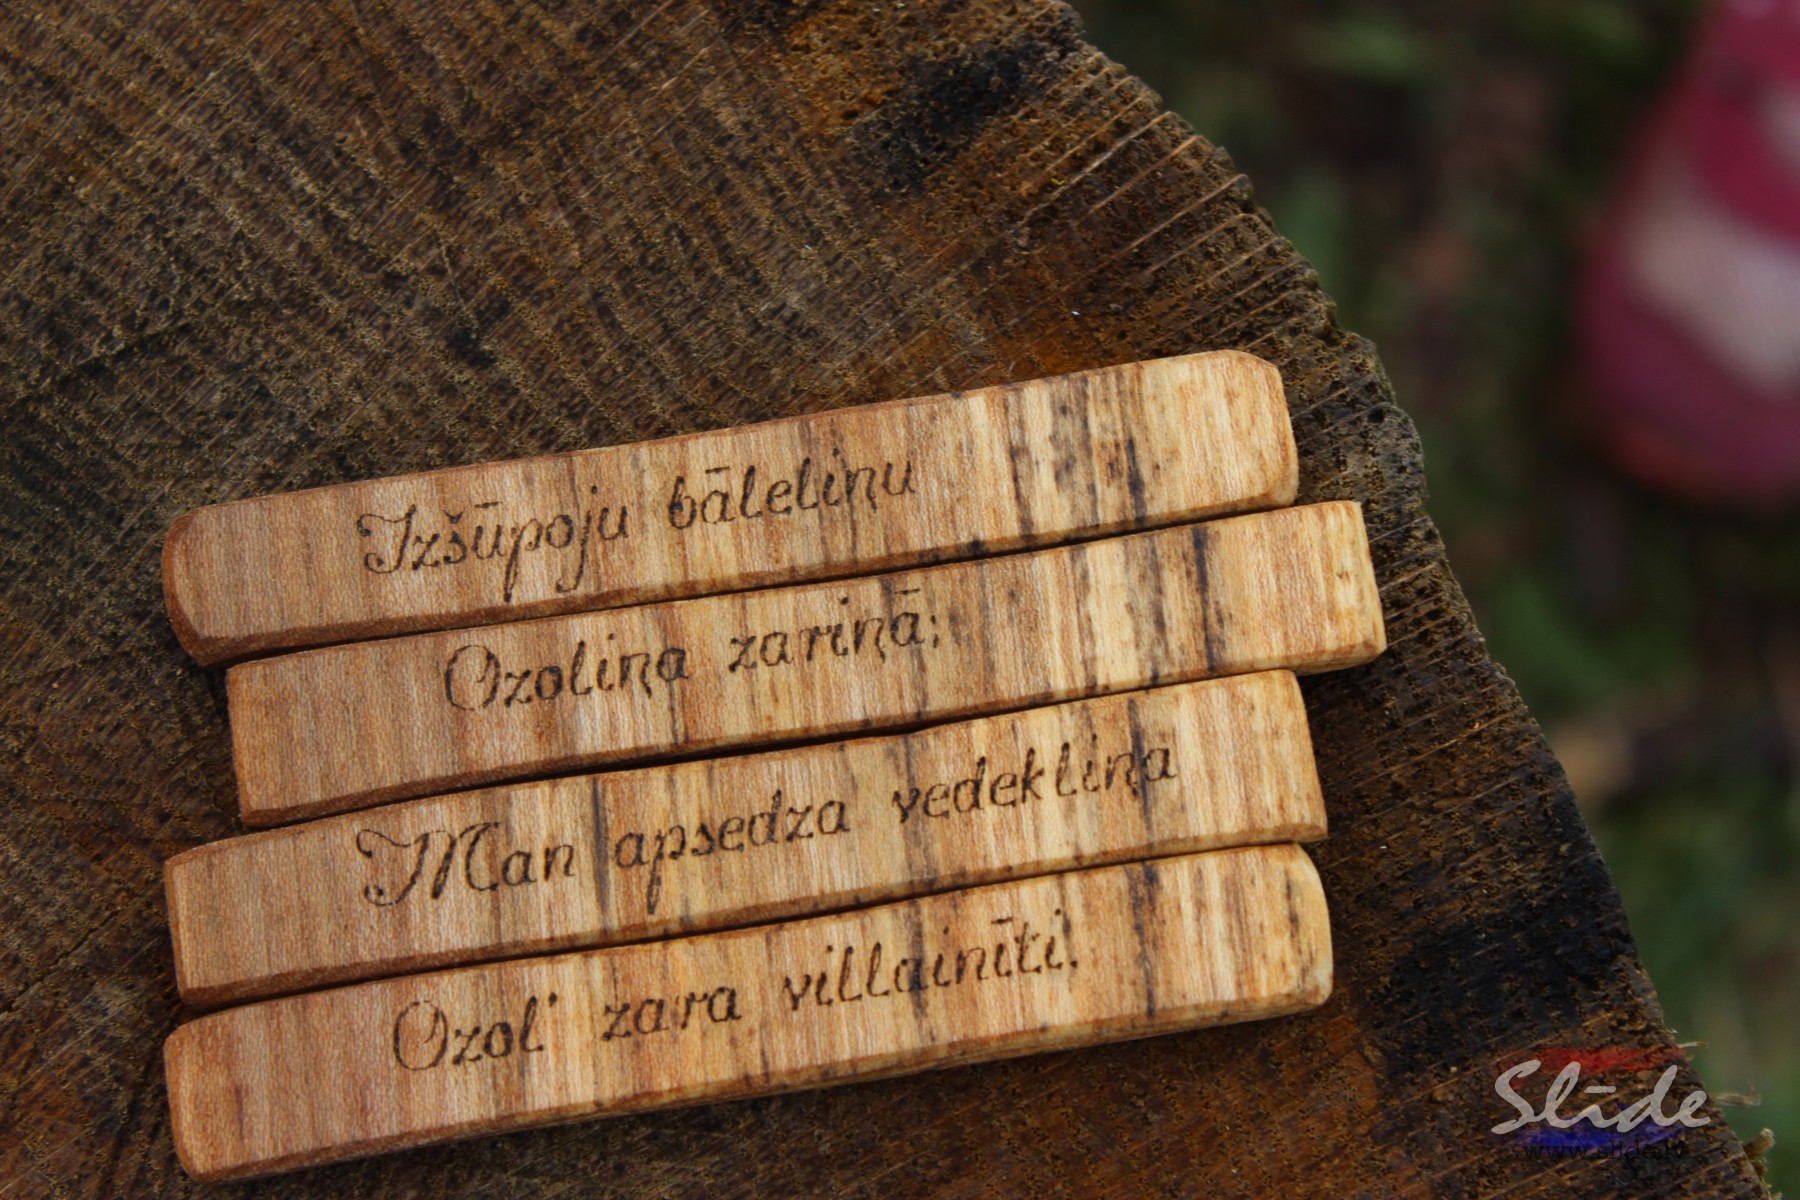 Izšūpoju bāleliņu
Ozoliņa zariņā;
Man apsedza vedekliņa
Ozol' zara villainīti.
Slīde
www.slide.lv